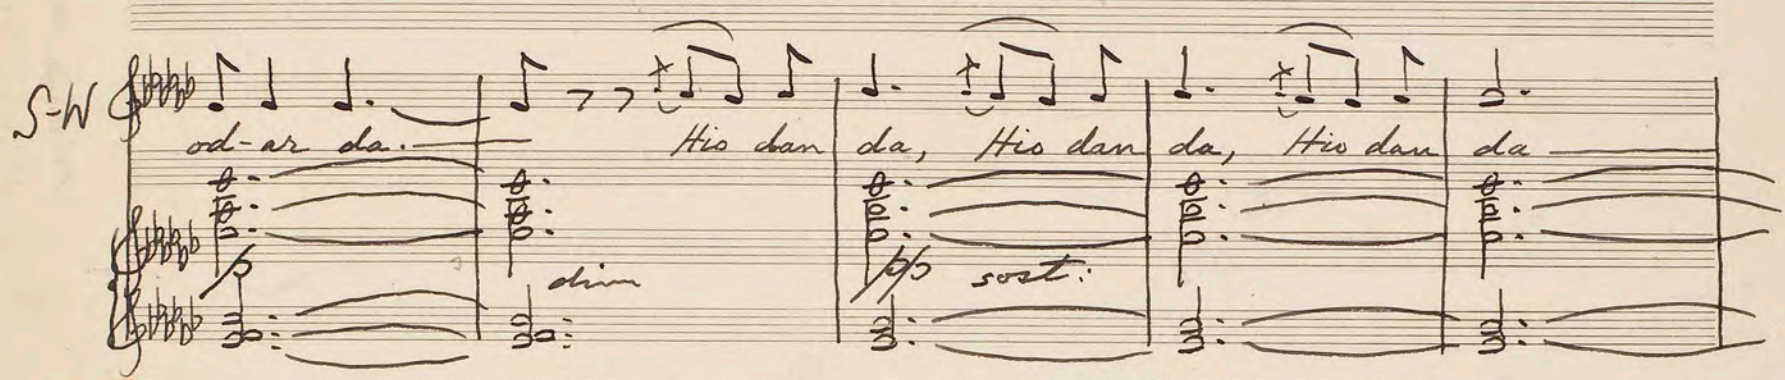 S-W
od-ar da. Hio dan da, Hio dan da, Hio dan da
p dim pp sost: